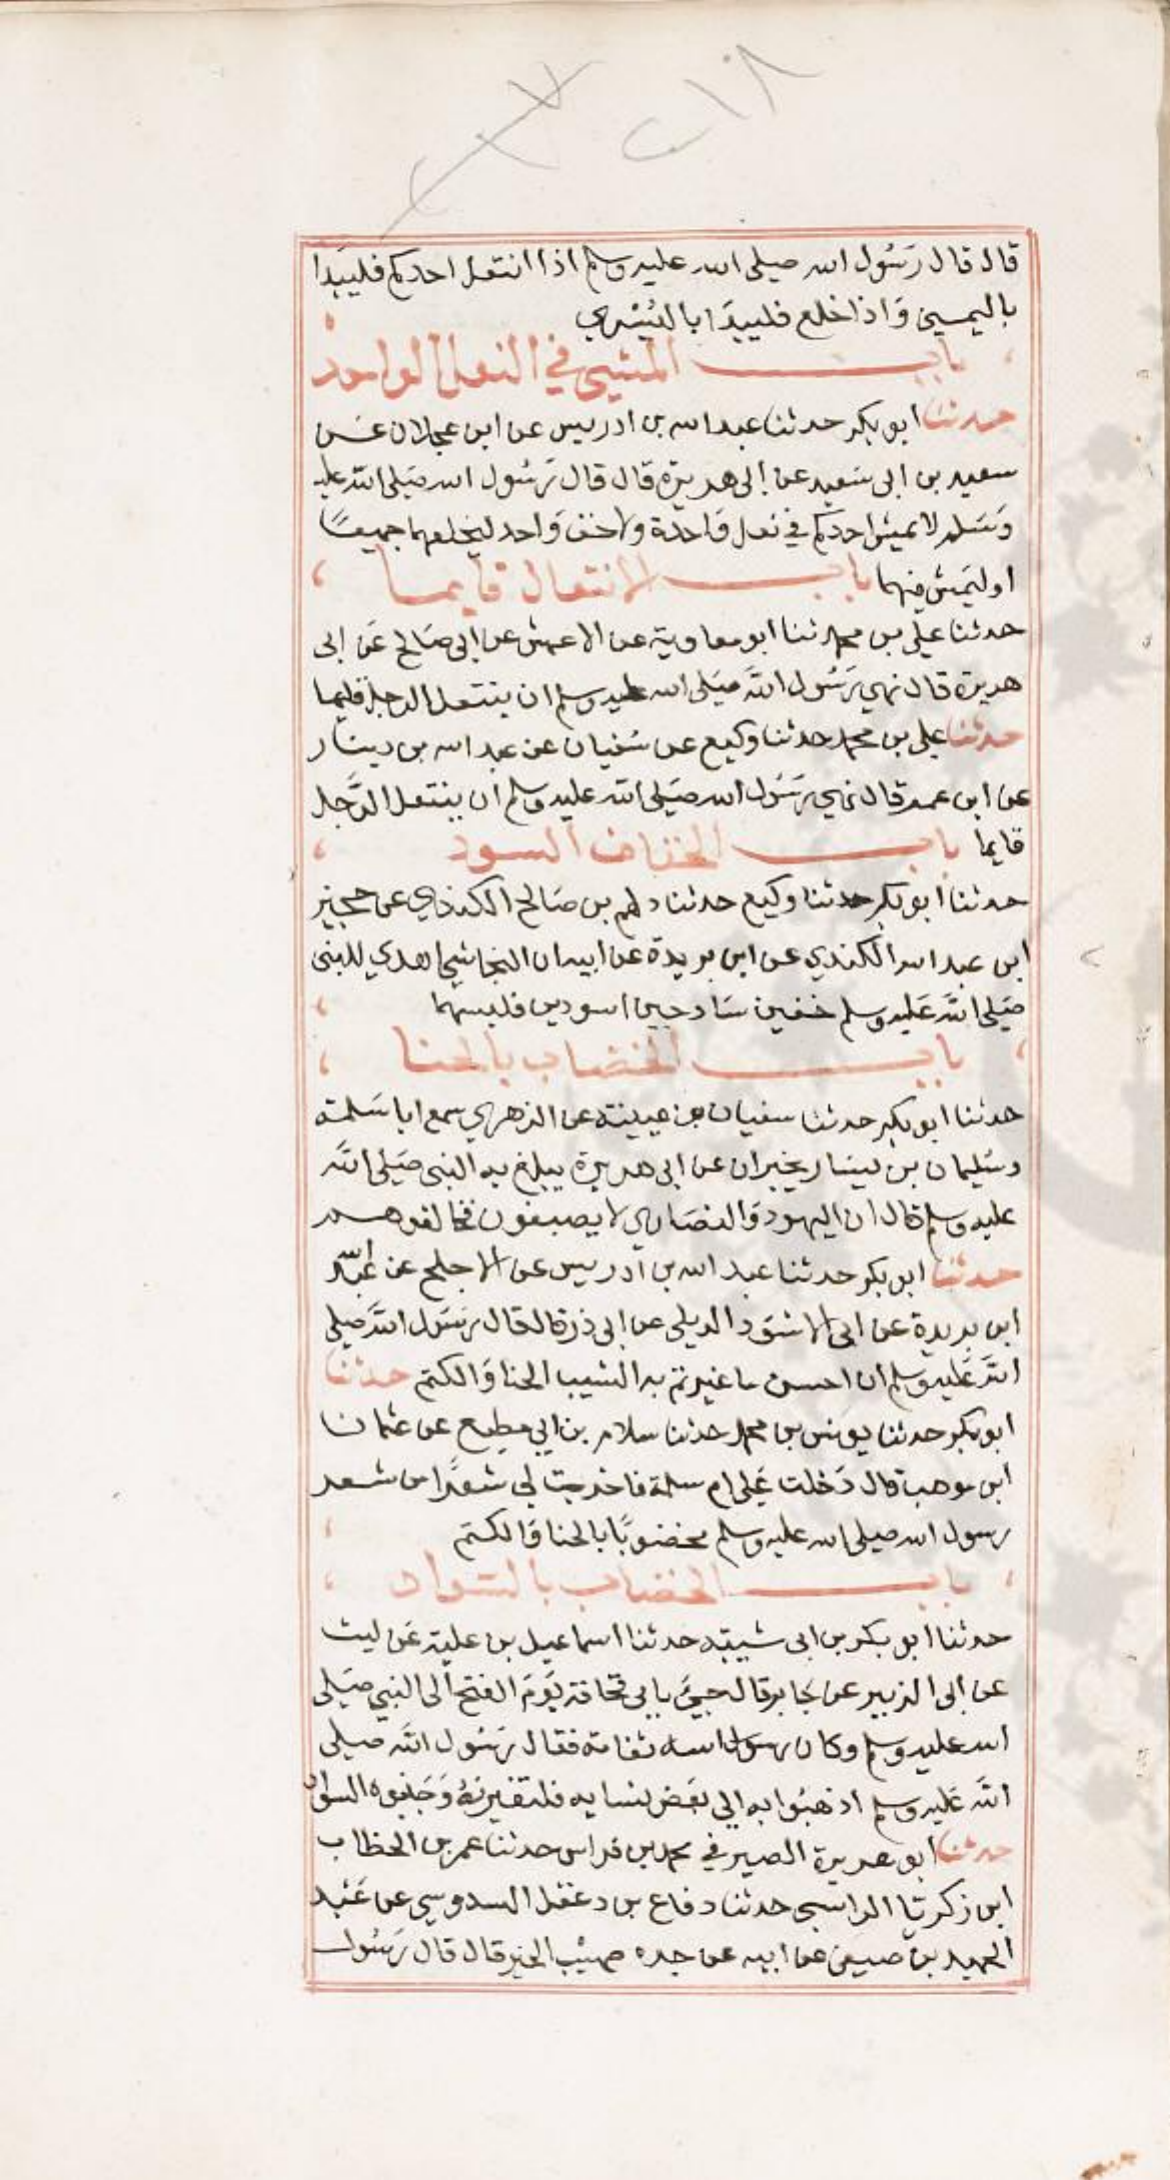 ٢١٨
قال قال رسول الله صلى الله عليه وسلم اذا انتعل احدكم فليبدا
باليمين واذا خلع فليبدا باليسرى
باب المشي في النعل الواحد
حدثنا ابو بكر حدثنا عبد الله بن ادريس عن ابن عجلان عن
سعيد بن ابى سعيد عن ابى هريرة قال قال رسول الله صلى الله عليه
وسلم لا يمش احدكم في نعل واحدة ولا خف واحد ليخلعهما جميعا
او ليمش فيهما باب الانتعال قايما
حدثنا علي بن محمد ثنا ابو معاوية عن الاعمش عن ابى صالح عن ابى
هريرة قال نهى رسول الله صلى الله عليه وسلم ان ينتعل الرجل قايما
حدثنا علي بن محمد حدثنا وكيع عن سفيان عن عبد الله بن دينار
عن ابن عمر قال نهى رسول الله صلى الله عليه وسلم ان ينتعل الرجل
قايما باب الخفاف السود
حدثنا ابو بكر حدثنا وكيع حدثنا دلهم بن صالح الكندي عن حجير
ابن عبد الله الكندي عن ابن بريدة عن ابيه ان النجاشي اهدي للنبى
صلى الله عليه وسلم خفين ساذجين اسودين فلبسهما
باب الخضاب بالحنا
حدثنا ابو بكر حدثنا سفيان بن عيينة عن الزهري سمع ابا سلمة
وسليمان بن يسار يخبران عن ابى هريرة يبلغ به النبى صلى الله
عليه وسلم قال ان اليهود والنصارى لا يصبغون فخالفوهم
حدثنا ابو بكر حدثنا عبد الله بن ادريس عن الاجلح عن عبد الله
ابن بريدة عن ابى الاسود الديلى عن ابى ذر قال قال رسول الله صلى
الله عليه وسلم ان احسن ما غيرتم به الشيب الحنا والكتم حدثنا
ابو بكر حدثنا يونس بن محمد حدثنا سلام بن ابي مطيع عن عثمان
ابن موهب قال دخلت على ام سلمة فاخرجت لي شعرا من شعر
رسول الله صلى الله عليه وسلم مخضوبا بالحنا والكتم
باب الخضاب بالسواد
حدثنا ابو بكر بن ابى شيبة حدثنا اسماعيل بن علية عن ليث
عن ابى الزبير عن جابر قال جيء بابي قحافة يوم الفتح الى النبي صلى
الله عليه وسلم وكان راسه ثغامة فقال رسول الله صلى
الله عليه وسلم اذهبوا به الى بعض نسايه فلتغيره وجنبوه السواد
حدثنا ابو هريرة الصيرفي محمد بن فراس حدثنا عمر بن الخطاب
ابن زكريا الراسبى حدثنا دفاع بن دغفل السدوسي عن عبد
الحميد بن صيفى عن ابيه عن جده صهيب الخير قال قال رسول